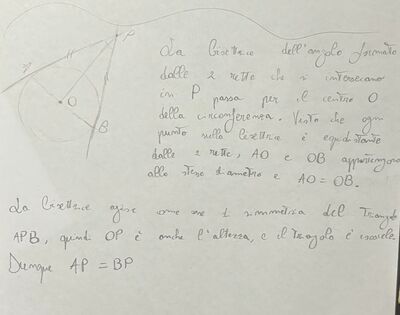 P
A
O
B
La bisettrice dell'angolo formato
dalle 2 rette che si intersecano
in P passa per il centro O
della circonferenza. Visto che ogni
punto sulla bisettrice è equidistante
dalle 2 rette, AO e OB appartengono
allo stesso diametro e AO = OB.
La bisettrice agisce come asse di simmetria del triangolo
APB, quindi OP è anche l'altezza, e il triangolo è isoscele.
Dunque AP = BP